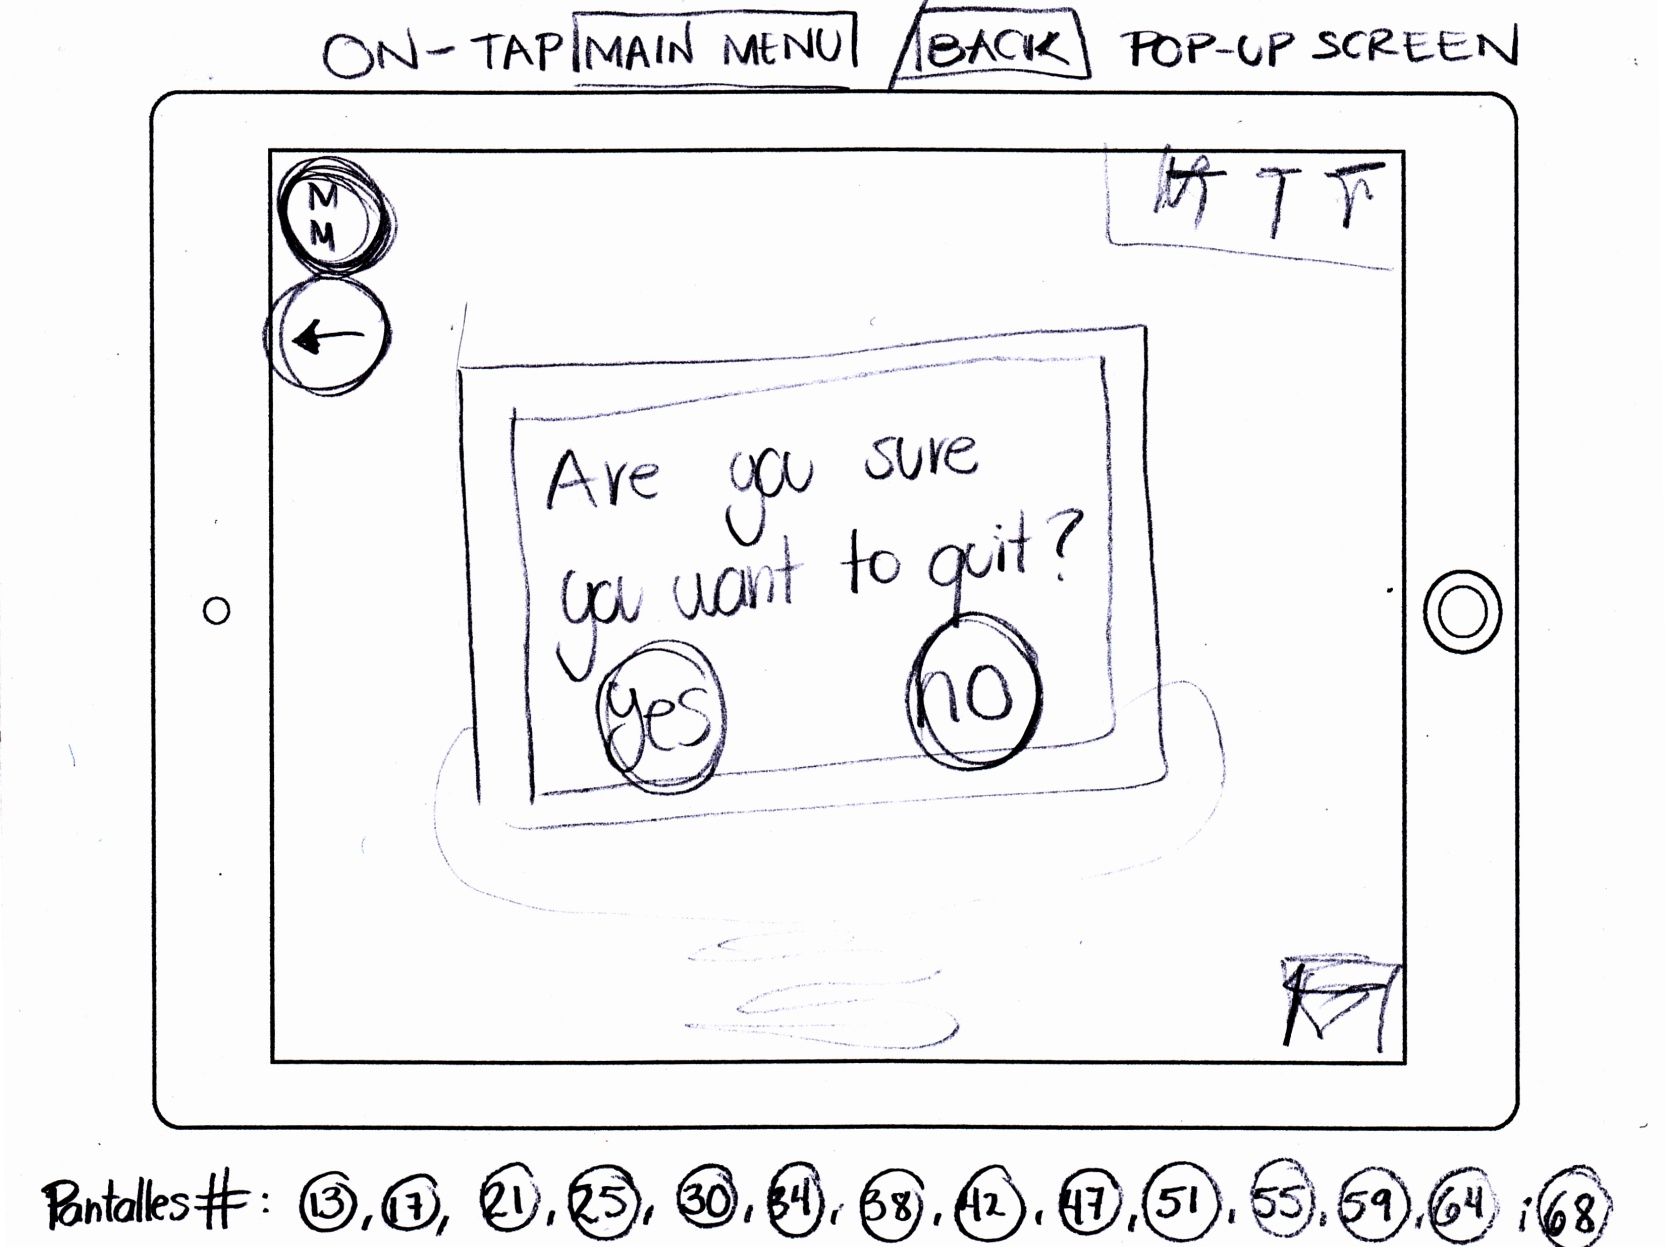 ON-TAP MAIN MENU / BACK POP-UP SCREEN
M
M
Are you sure
you want to quit?
yes no
Pantalles #: 13, 17, 21, 25, 30, 34, 38, 42, 47, 51, 55, 59, 64 i 68